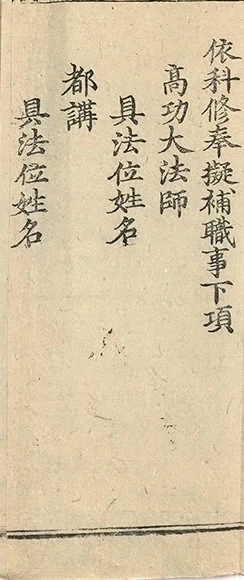 依科修奉擬補職事下項
高功大法師
具法位姓名
都講
具法位姓名